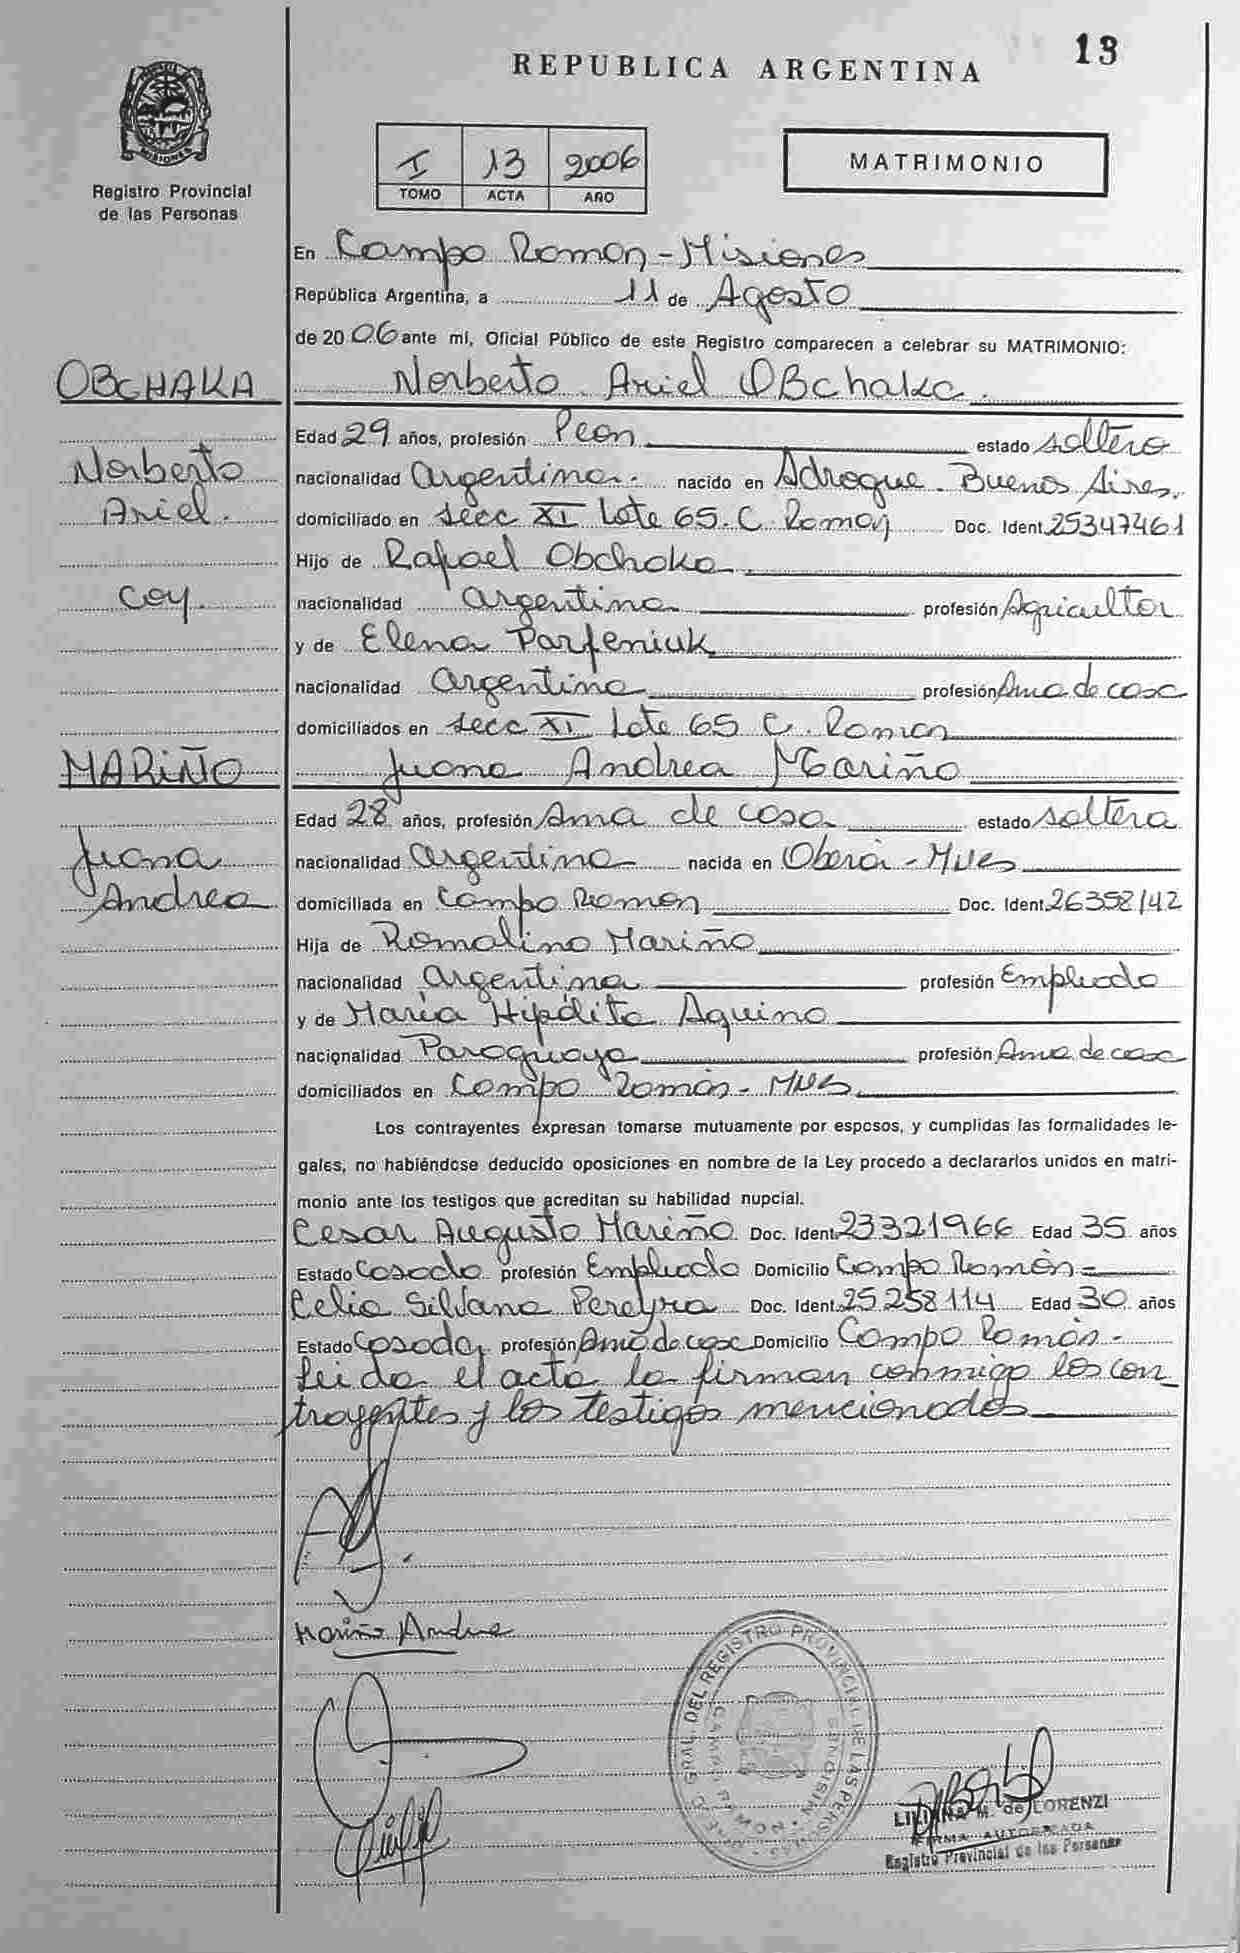 REPUBLICA ARGENTINA
13
MISIONES
Registro Provincial
de las Personas
I 13 2006
TOMO ACTA AÑO
MATRIMONIO
En Campo Ramon - Misiones
República Argentina, a 11 de Agosto
de 2006 ante mi, Oficial Público de este Registro comparecen a celebrar su MATRIMONIO:
OBCHAKA
Norberto Ariel OBchaka.
Edad 29 años, profesión Peon estado soltero
Norberto
nacionalidad argentina. nacido en Adrogue. Buenos Aires.
Ariel.
domiciliado en secc XI Lote 65. C. Ramon Doc. Ident. 25347461
Hijo de Rafael Obchaka.
coy.
nacionalidad argentina profesión Agricultor
y de Elena Parfeniuk
nacionalidad argentina profesión Ama de casa
domiciliados en secc XI Lote 65 C. Ramon
MARIÑO
Juana Andrea Mariño
Edad 28 años, profesión Ama de casa estado soltera
Juana
nacionalidad argentina nacida en Oberá - Mnes
Andrea
domiciliada en Campo Ramon Doc. Ident. 26358142
Hija de Romalino Mariño
nacionalidad argentina profesión Empleado
y de María Hipólita Aquino
nacionalidad Paraguaya profesión Ama de casa
domiciliados en Campo Ramón - Mnes
Los contrayentes expresan tomarse mutuamente por esposos, y cumplidas las formalidades le-
gales, no habiéndose deducido oposiciones en nombre de la Ley procedo a declararlos unidos en matri-
monio ante los testigos que acreditan su habilidad nupcial.
Cesar Augusto Mariño Doc. Ident. 23321966 Edad 35 años
Estado Casado profesión Empleado Domicilio Campo Ramón -
Celia Silvana Pereyra Doc. Ident. 25258114 Edad 30 años
Estado Casada profesión Ama de casa Domicilio Campo Ramón -
Leida el acta la firman conmigo los con
trayentes y los testigos mencionados
Mariño Andrea
GRAL. DEL REGISTRO PROVINCIAL DE LAS PERSONAS
CAMPO RAMON - MISIONES
LILIANA M. de LORENZI
FIRMA AUTORIZADA
Registro Provincial de las Personas